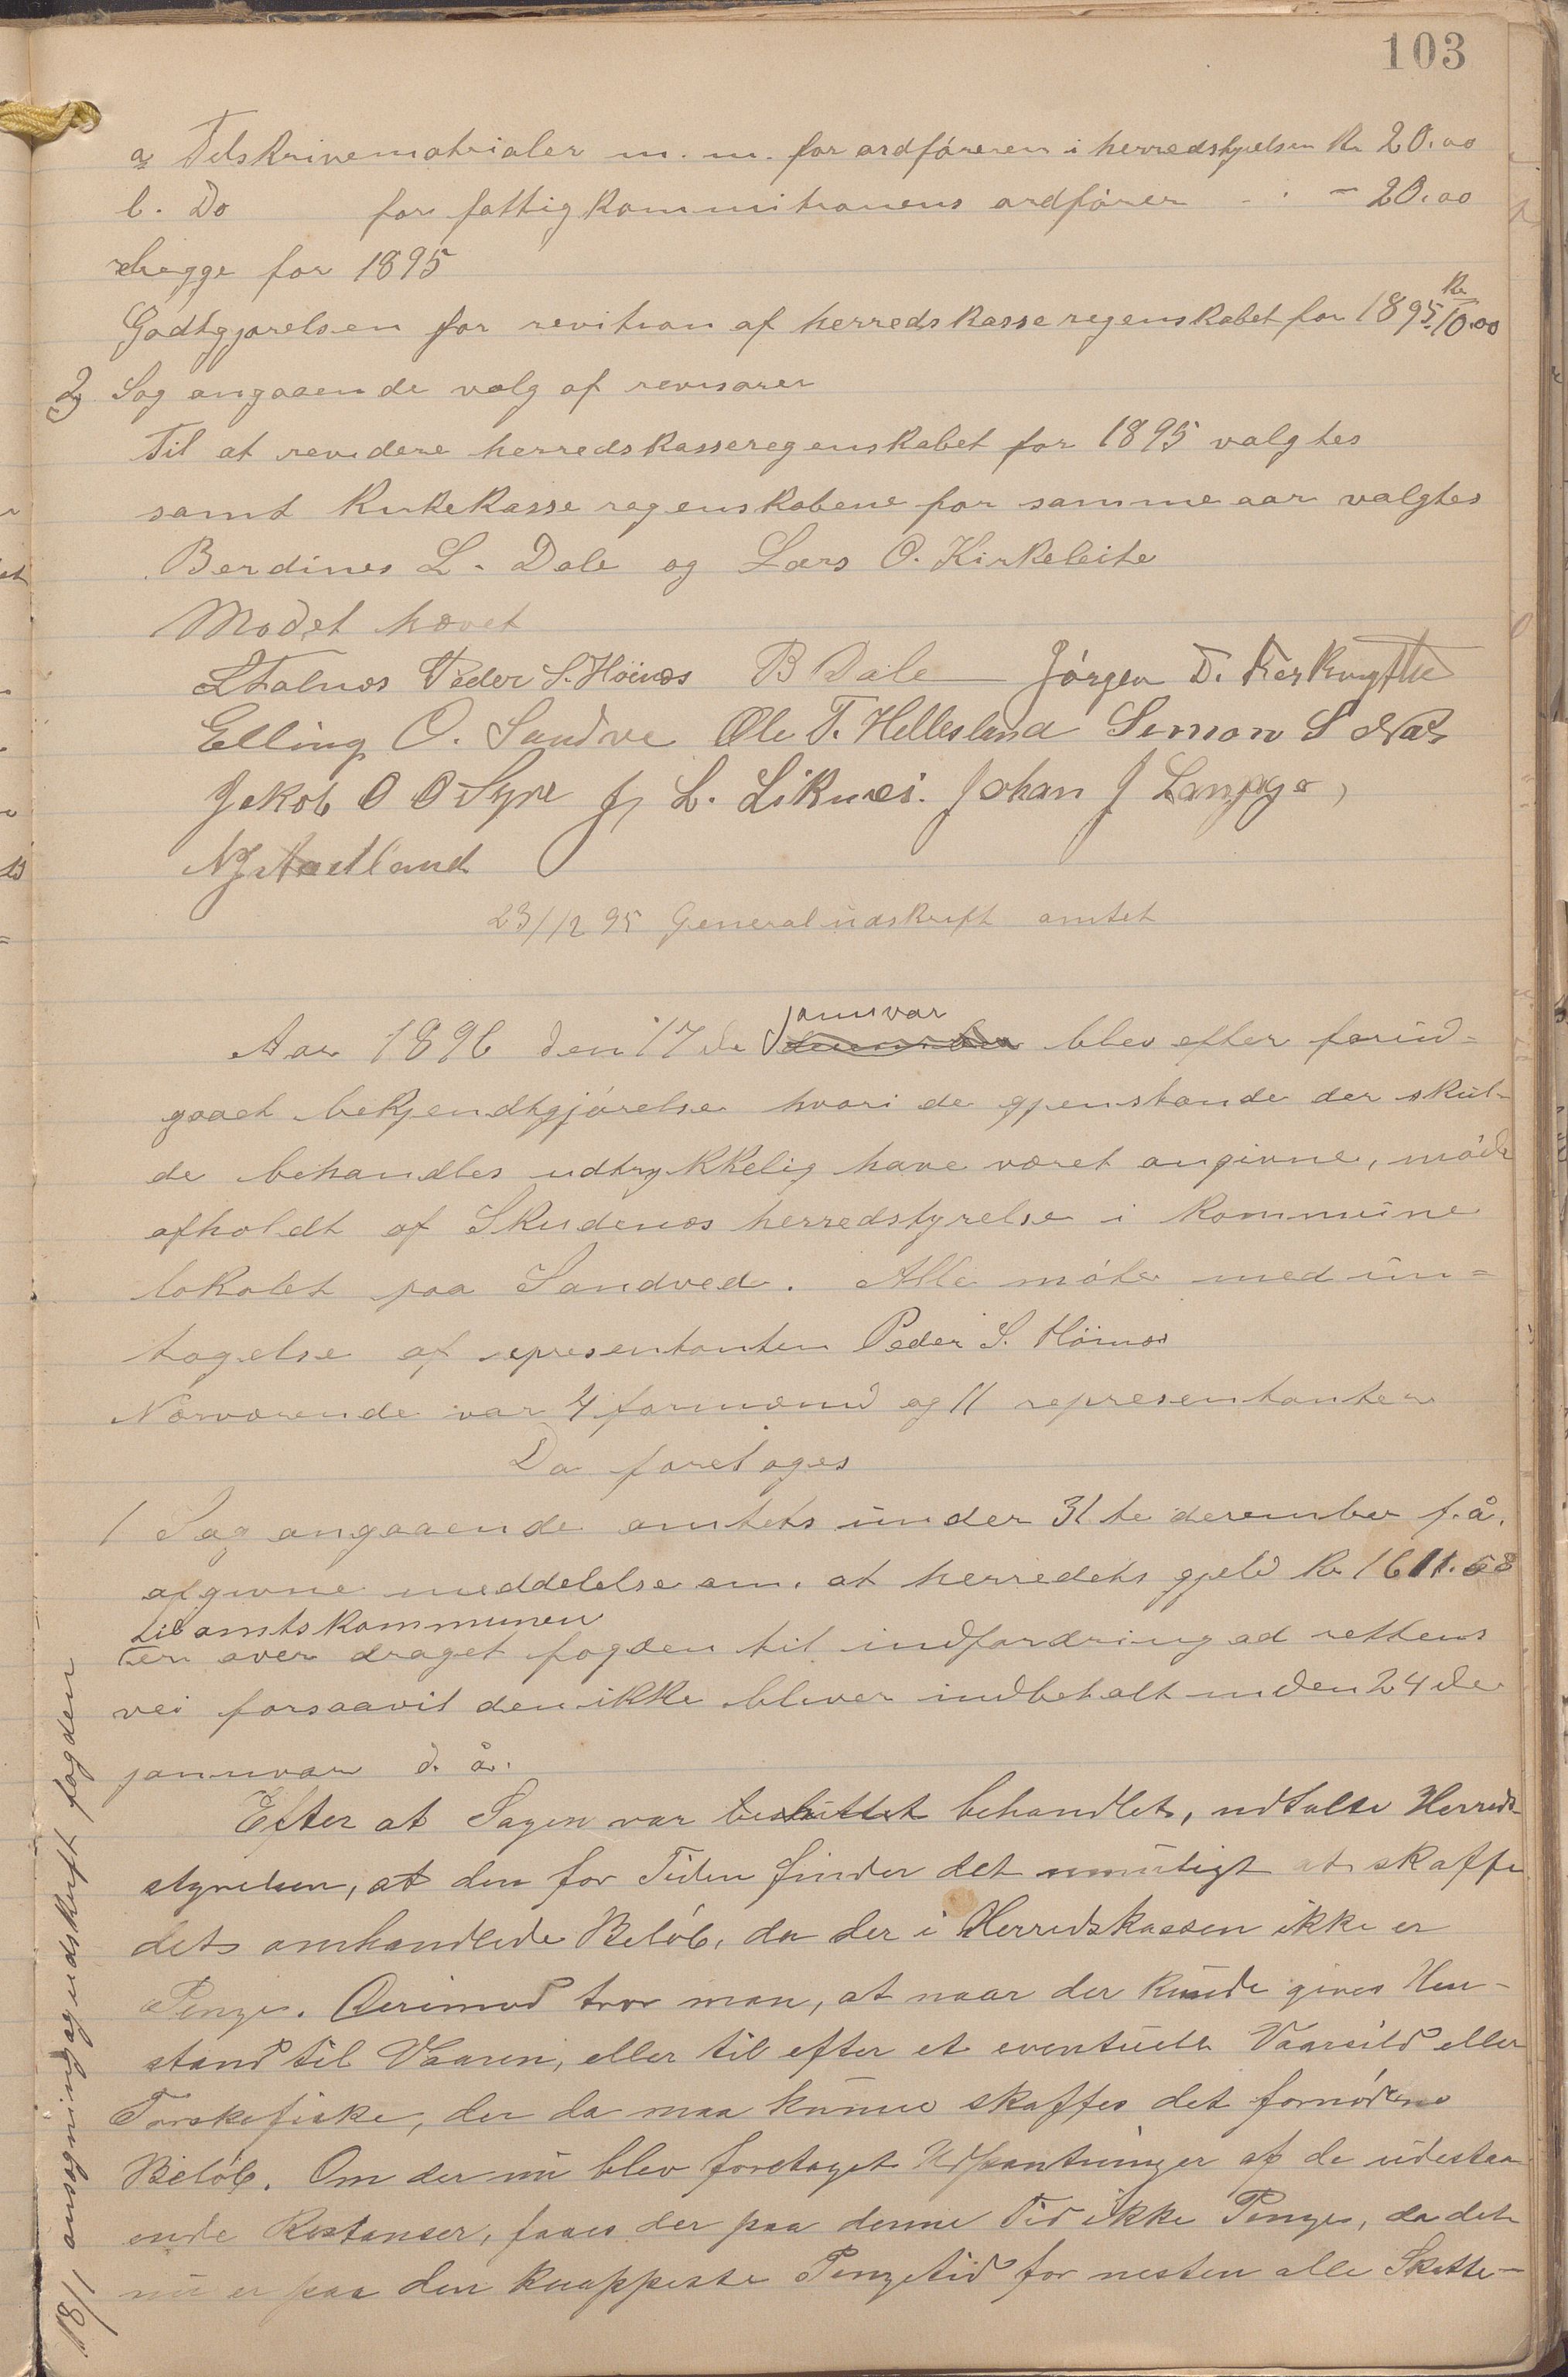 103
a Tilskrivematrialer m. m. for ordföreren i herredstyrelsen Kr 20.00
b. Do for fattigkommitionens ordförer - 20.00
begge for 1895
Godtgjorelsen for revition af herredskasseregenskabet for 1895 Kr 10.00
2 Sag angaaende valg af revisorer
Til at revidere herredskasseregenskabet for 1895 valgtes
samt Kirkekasseregenskabene for samme aar valgtes
Berdines L. Dale og Lars O. Kirkeleite
Modet hævet
Peder S. Höinæs B Dale Jörgen D.
Elling O. Sandve Ole T. Hellesland Simon S
Jakob O O Syre J L. Liknæs. Johan J
23/12 95 Generaludskrift amtet
Aar 1896 den 17de januvar blev efter forud-
gaaet bekjendtgjörelse hvori de gjenstande der skul-
de behandles udtrykkelig have været angivne, möde
afholdt af Skudenæs herredstyrelse i kommune
lokalet paa Sandved. Alle möte med un-
tagelse af representanten Peder S. Höinæs
Nærværende var 4 formænd og 11 representanter
Da foretoges
1 Sag angaaende amtets under 31te desember f. å.
afgivne meddelelse om, at herredets gjeld Kr 1611.68
til amtskommunen
er over draget fogden til indfordring ad rettens
vei forsaavit den ikke bliver indbetalt inden 24de
januvar d. å.
Efter at Sagen var besluttet behandlet, udtalte Herreds-
styrelsen, at den for Tiden finder det umuligt at skaffe
dets omhandlede Belöb, da der i Herredskassen ikke er
Penge. Derimod tror man, at naar der kunde gives Hen-
stand til Vaaren, eller til efter et eventuelt Vaarsild eller
Torskefiske, der da maa kunne skaffes det fornödne
Belöb. Om der nu blev foretaget Udpantninger af de udestaa
ende Restanser, faaes der paa denne Tid ikke Penge, da det
nu er paa den knappeste Pengetid for nesten alle Skatte-
18/1 ansøgning og udskrift fogden